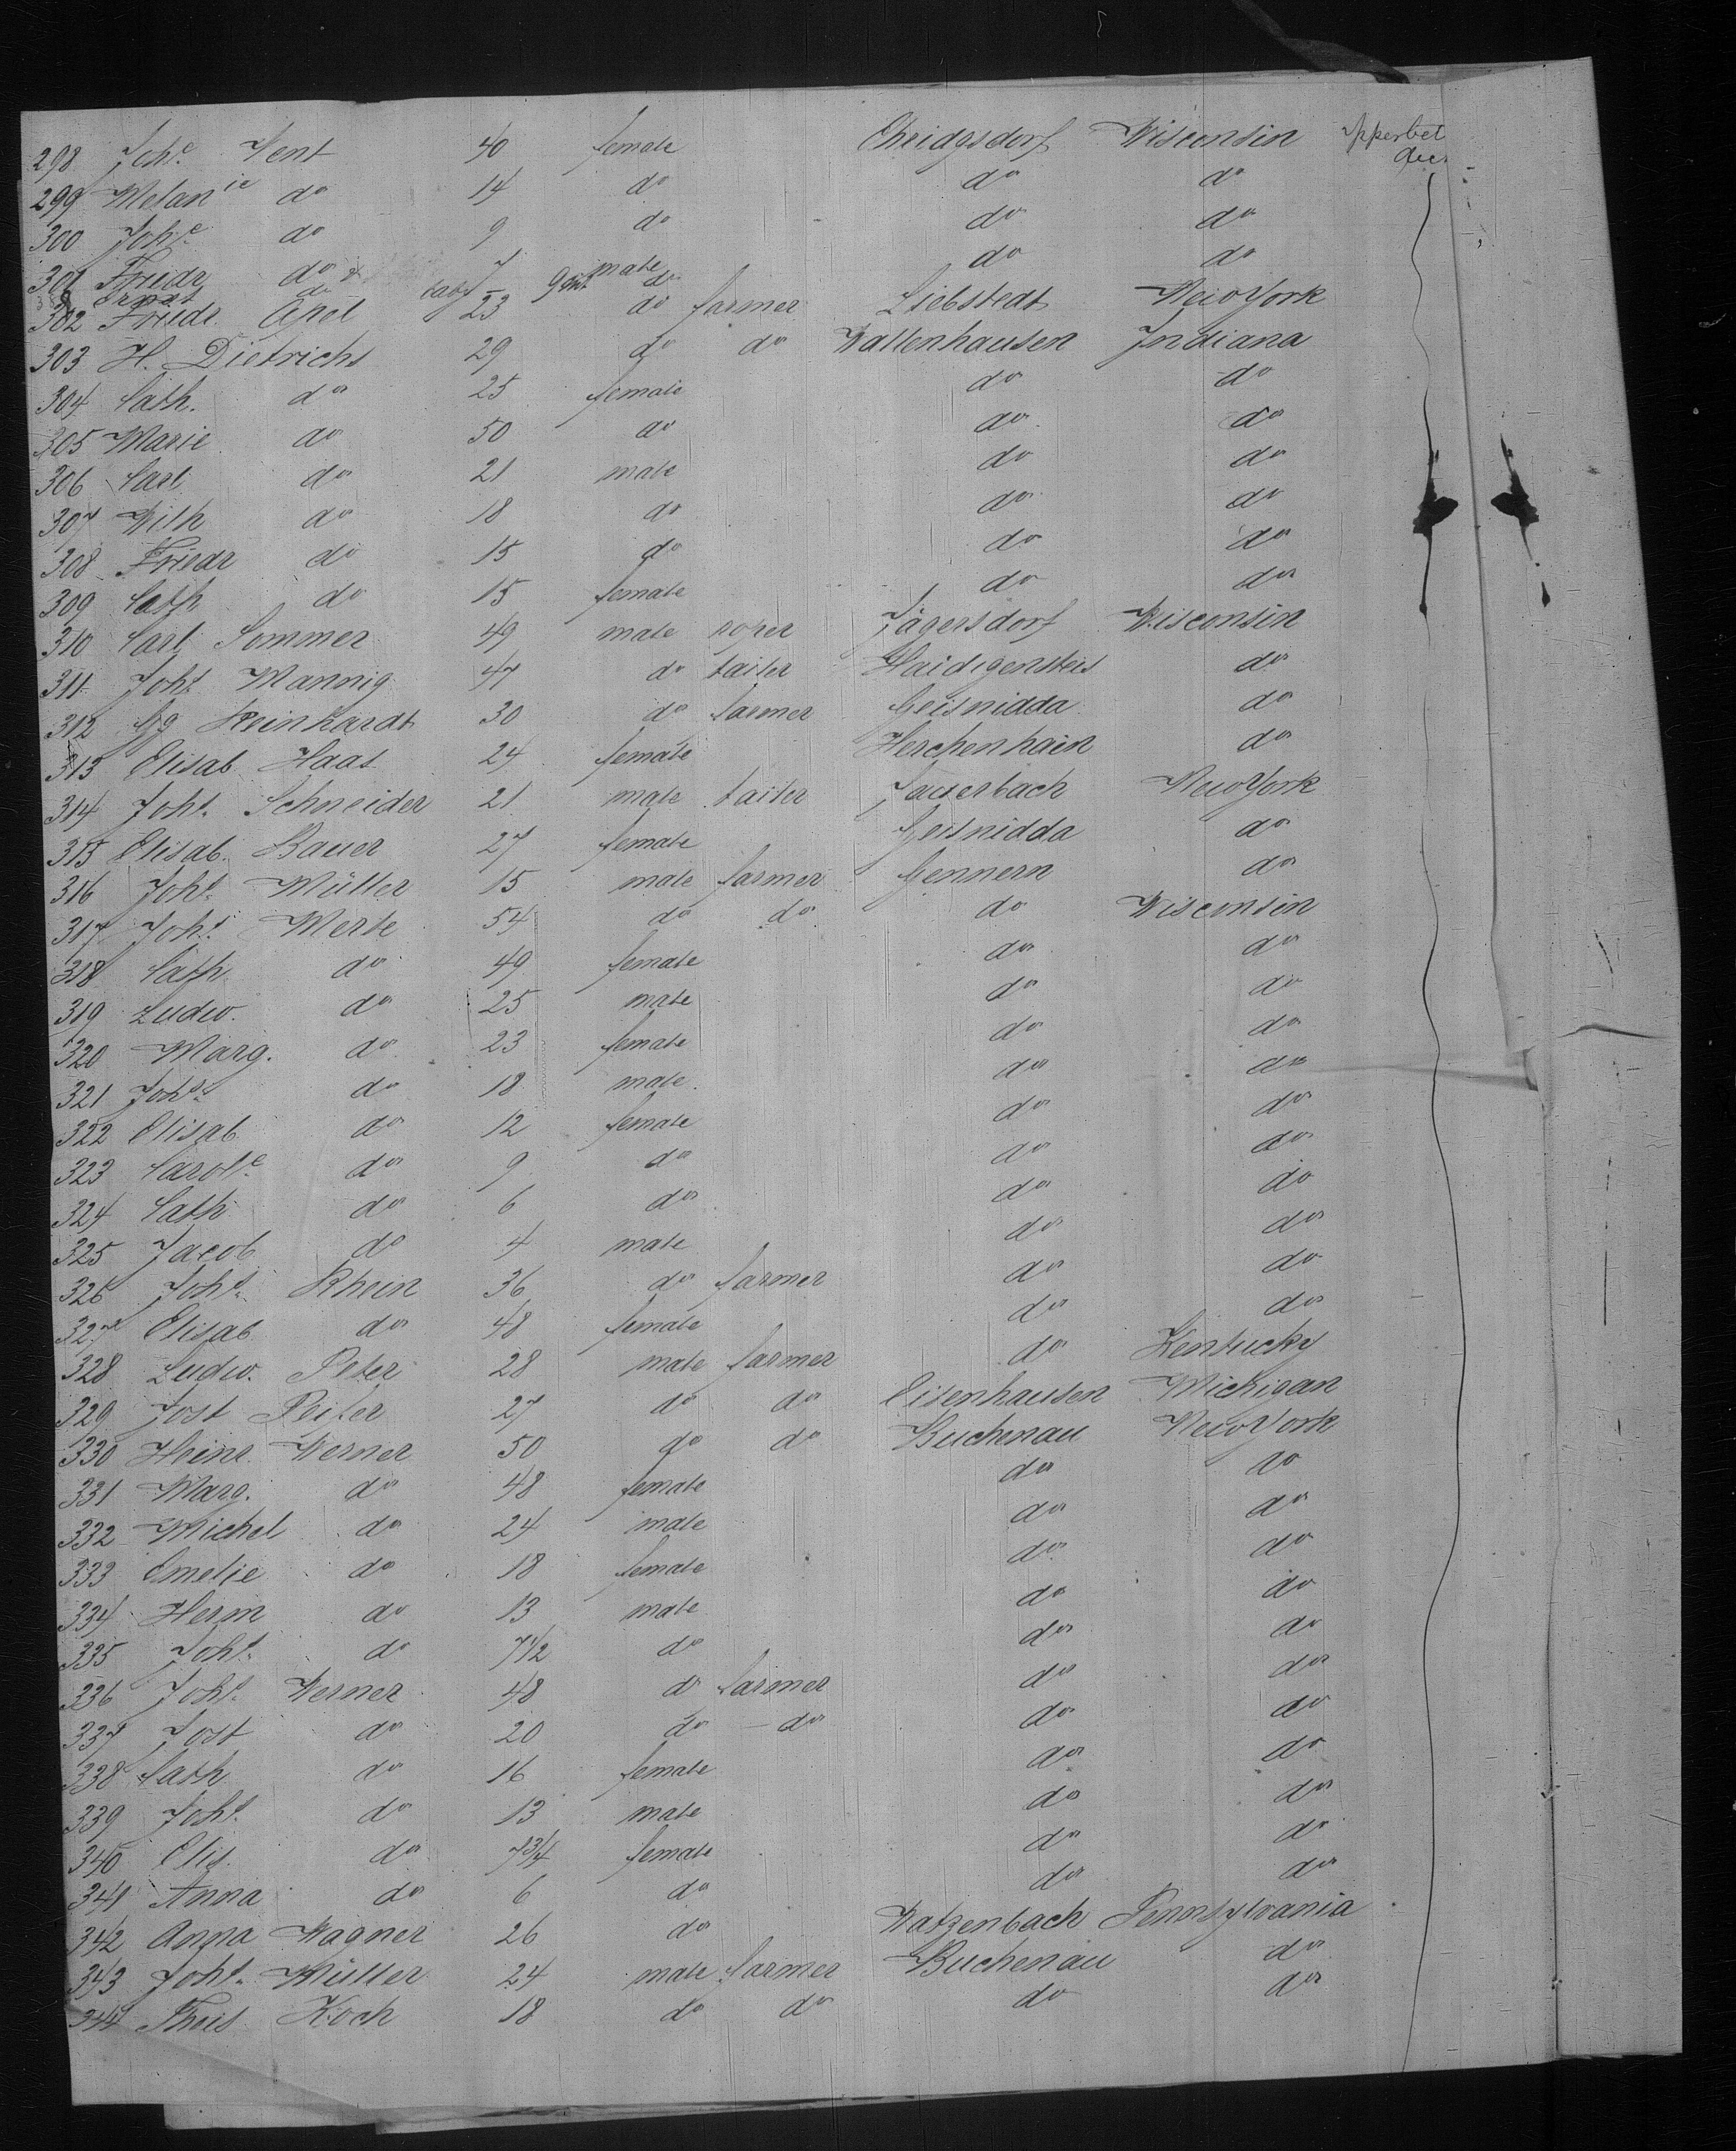 298 Joh.e Vent 40 female Cheidgsdorf Wisconsin Upperbet deck
299 Melanie do 14 do do do
300 Joh.e do 9 do do do
301 Friedr do 7 male do do
Ernst do baby 9 mt. do
302 Friedr. Apel 23 do farmer Liebstedt New York
303 H. Dietrichs 29 do do Wallenhausen Indiana
304 Cath. do 25 female do do
305 Marie do 50 do do do
306 Carl do 21 male do do
307 Wilh do 18 do do do
308 Friedr do 15 do do do
309 Cath do 15 female do do
310 Carl Sommer 49 male roper Jägersdorf Wisconsin
311 Joh.s Mannig 47 do tailer do
312 Gg Reinhardt 30 do farmer Geisnidda do
313 Elisab. Haas 24 female Herchenhain do
314 Joh.s Schneider 21 male tailer Jauerbach New York
315 Elisab. Bauer 27 female Geisnidda do
316 Joh.s Müller 15 male farmer Gennern do
317 Joh.s Merle 54 do do do Wisconsin
318 Cath do 49 female do do
319 Ludw. do 25 male do do
320 Marg. do 23 female do do
321 Joh.s do 18 male do do
322 Elisab do 12 female do do
323 Carol.e do 9 do do do
324 Cath do 6 do do do
325 Jacob do 4 male do do
326 Joh.s Rhein 36 do farmer do do
327 Elisab do 48 female do do
328 Ludw. Peter 28 male farmer do Kentucky
329 Jost Peifer 27 do do Eisenhausen Michigan
330 Heinr. Werner 50 do do Buchenau New York
331 Marg. do 48 female do do
332 Michel do 24 male do do
333 Emelie do 18 female do do
334 Herm do 13 male do do
335 Joh.s do 7 1/2 do do do
336 Joh.s Werner 48 do farmer do do
337 Jost do 20 do do do do
338 Cath do 16 female do do
339 Joh.s do 13 male do do
340 Elis. do 7 3/4 female do do
341 Anna do 6 do do do
342 Anna Wagner 26 do Watzenbach Pennsylvania
343 Joh.s Müller 24 male farmer Buchenau do
344 Theis Koch 18 do do do do